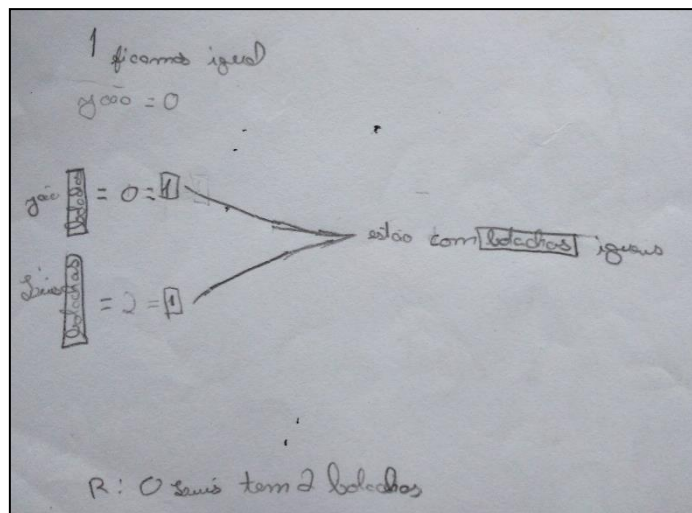 1 ficamos igual
João = 0
João bolachas = 0 = 1
Luís bolachas = 2 = 1
estão com bolachas iguais
R: O Luís tem 2 bolachas